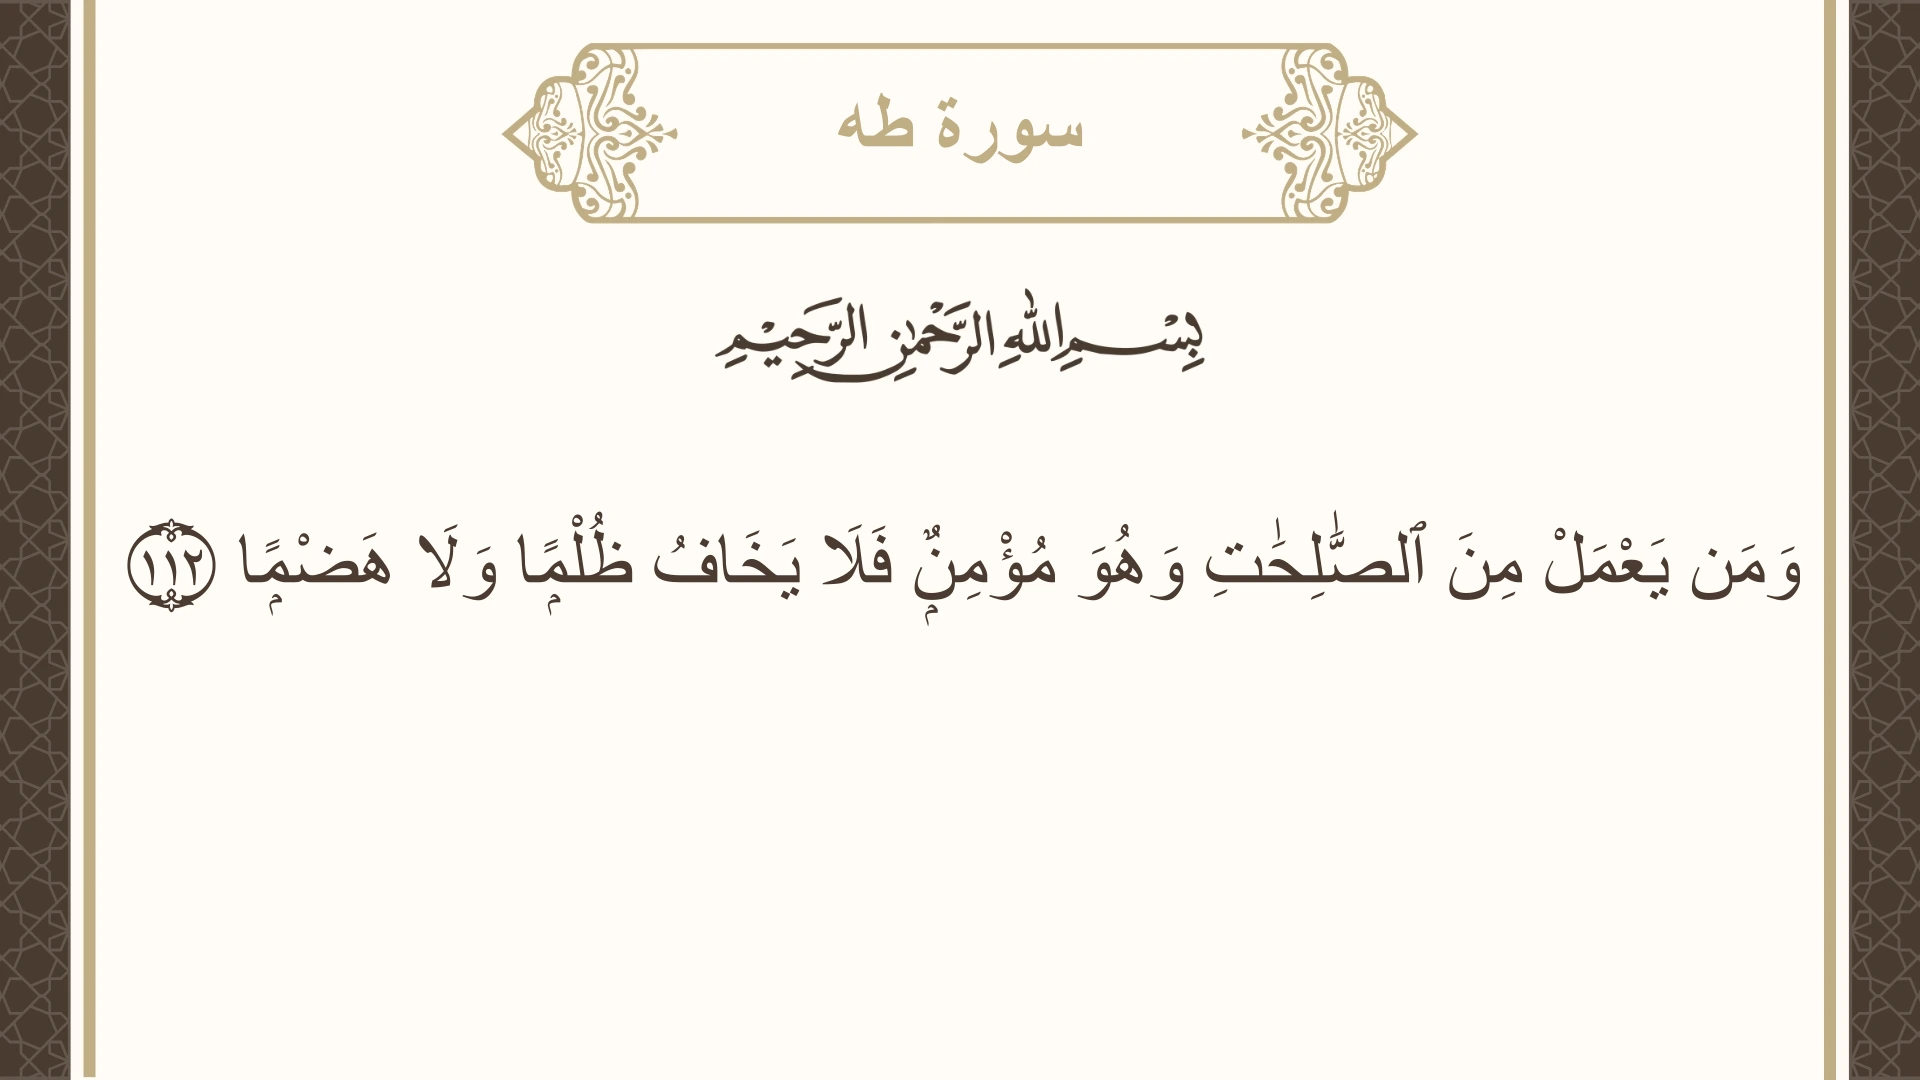 سورة طه
بِسْمِ اللهِ الرَّحْمٰنِ الرَّحِيْمِ
وَمَن يَعْمَلْ مِنَ ٱلصَّٰلِحَٰتِ وَهُوَ مُؤْمِنٌۭ فَلَا يَخَافُ ظُلْمًۭا وَلَا هَضْمًۭا ١١٢